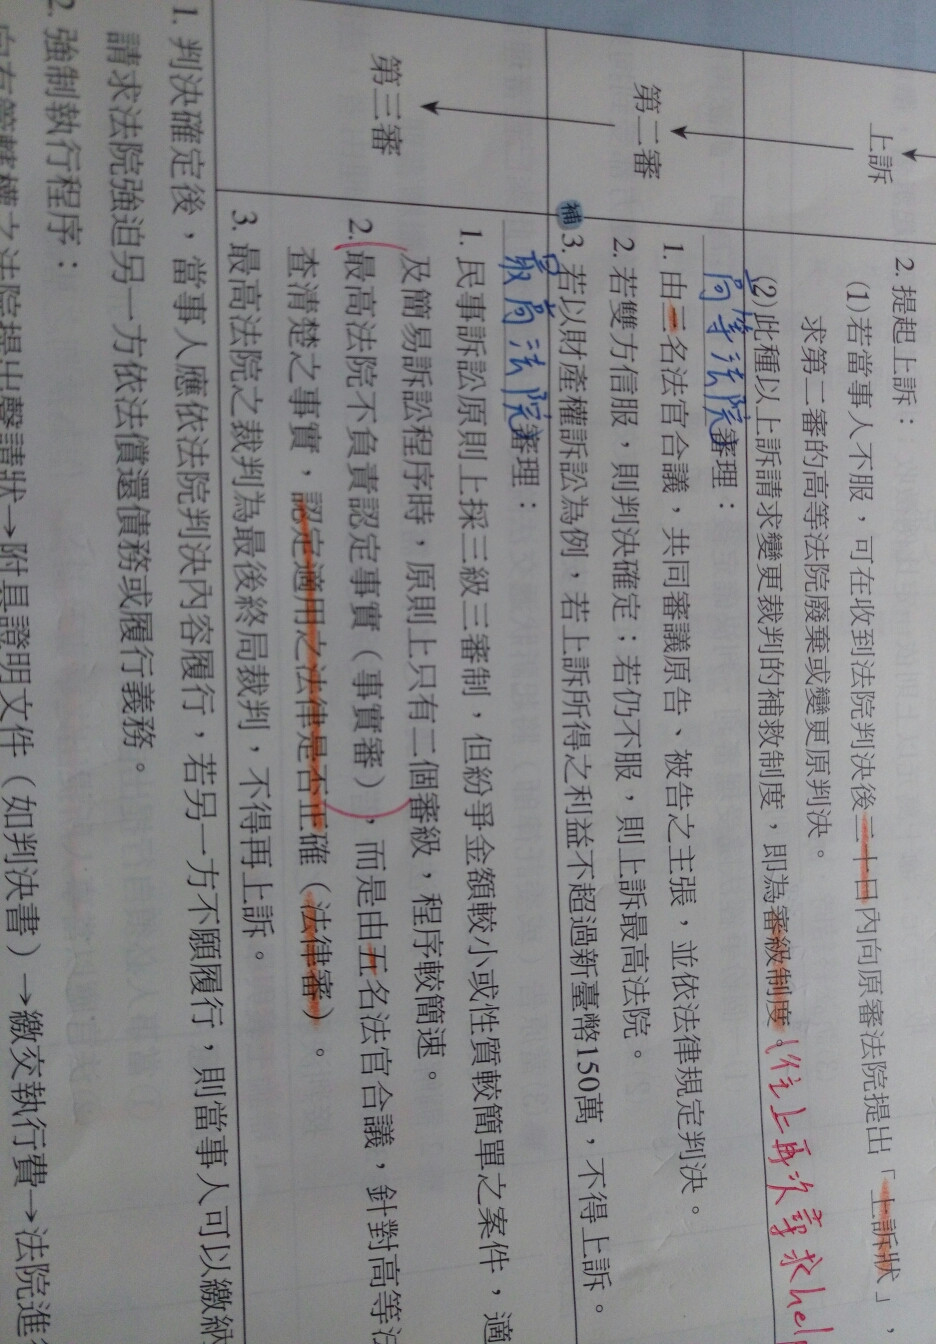 上訴
2. 提起上訴：
(1)若當事人不服，可在收到法院判決後二十日內向原審法院提出「上訴狀」，
求第二審的高等法院廢棄或變更原判決。
(2)此種以上訴請求變更裁判的補救制度，即為審級制度。(往上再次尋求help
第二審
高等法院審理：
1. 由三名法官合議，共同審議原告、被告之主張，並依法律規定判決。
2. 若雙方信服，則判決確定；若仍不服，則上訴最高法院。
補3. 若以財產權訴訟為例，若上訴所得之利益不超過新臺幣150萬，不得上訴。
第三審
最高法院審理：
1. 民事訴訟原則上採三級三審制，但紛爭金額較小或性質較簡單之案件，適
及簡易訴訟程序時，原則上只有二個審級，程序較簡速。
2. 最高法院不負責認定事實（事實審），而是由五名法官合議，針對高等法
查清楚之事實，認定適用之法律是否正確（法律審）。
3. 最高法院之裁判為最後終局裁判，不得再上訴。
1. 判決確定後，當事人應依法院判決內容履行，若另一方不願履行，則當事人可以繳納
請求法院強迫另一方依法償還債務或履行義務。
2. 強制執行程序：
向有管轄權之法院提出聲請狀→附具證明文件（如判決書）→繳交執行費→法院進行